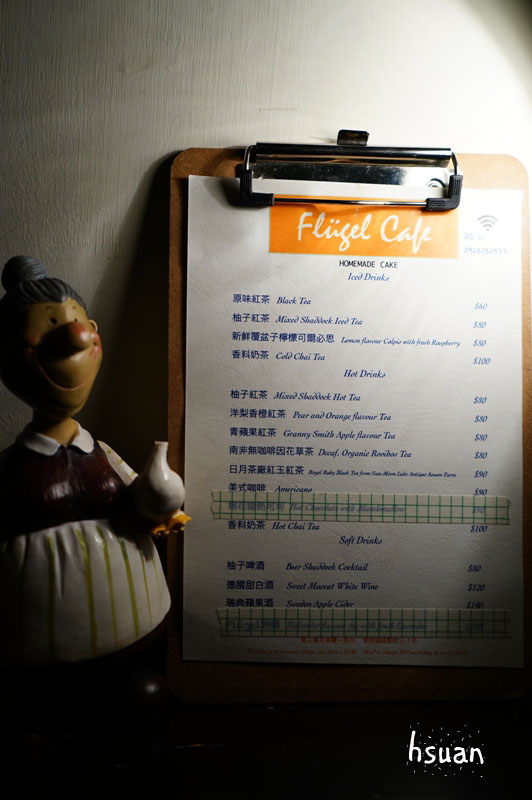 Flügel Cafe
HOMEMADE CAKE
Iced Drinks
原味紅茶 Black Tea $60
柚子紅茶 Mixed Shaddock Iced Tea $80
新鮮覆盆子檸檬可爾必思 Lemon flavour Calpis with frush Raspberry $80
香料奶茶 Cold Chai Tea $100
Hot Drinks
柚子紅茶 Mixed Shaddock Hot Tea $80
洋梨香橙紅茶 Pear and Orange flavour Tea $80
青蘋果紅茶 Granny Smith Apple flavour Tea $80
南非無咖啡因花草茶 Decaf. Organic Rooibos Tea $80
日月茶廠紅玉紅茶 Royal Ruby Black Tea from Sun-Moon Lake Antique Assam Farm $90
美式咖啡 Americano $90
Hot Chocolate with Marshmallow
香料奶茶 Hot Chai Tea $100
Soft Drinks
柚子啤酒 Beer Shaddock Cocktail $80
德國甜白酒 Sweet Muscat White Wine $120
瑞典蘋果酒 Sweden Apple Cider $140
hsuan